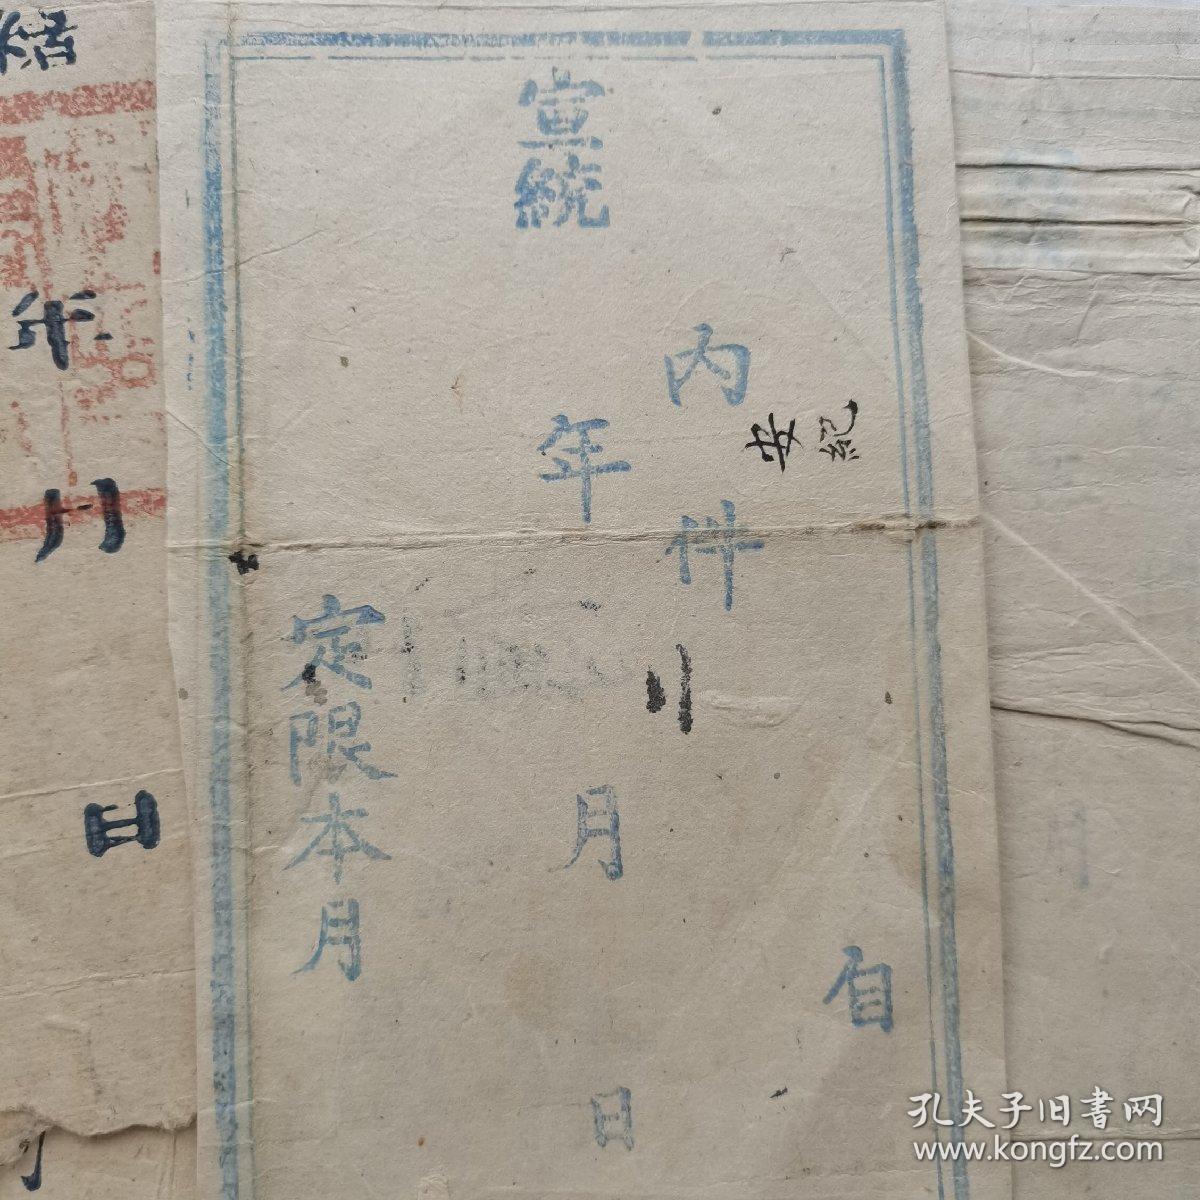 自
内件
紀
安
宣統年月日
定限本月
年月日
孔夫子旧書网
www.kongfz.com